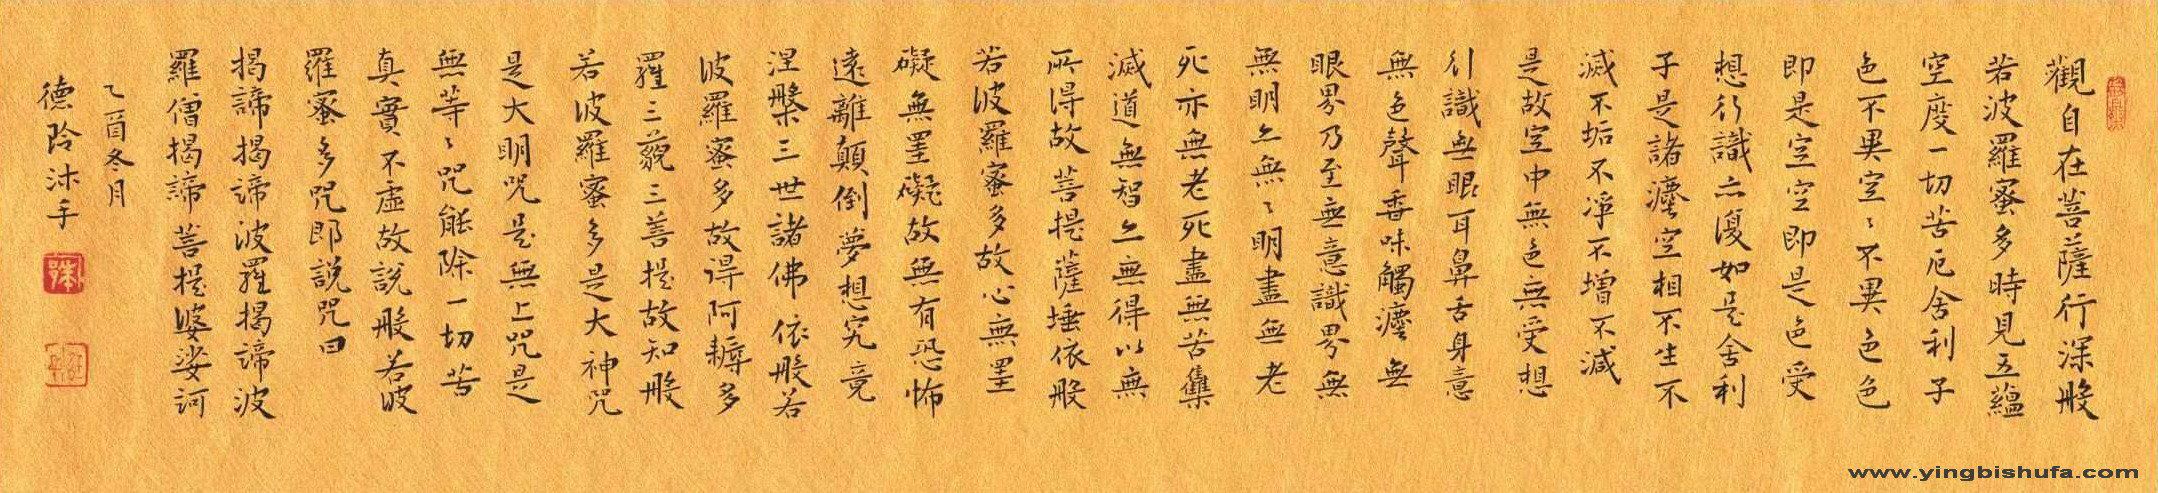 觀自在菩薩行深般
若波羅蜜多時見五蘊
空度一切苦厄舍利子
色不異空〻不異色色
即是空空即是色受
想行識亦復如是舍利
子是諸灋空相不生不
滅不垢不淨不增不減
是故空中無色無受想
行識無眼耳鼻舌身意
無色聲香味觸灋無
眼界乃至無意識界無
無明亦無〻明盡無老
死亦無老死盡無苦集
滅道無智亦無得以無
所得故菩提薩埵依般
若波羅蜜多故心無罣
礙無罣礙故無有恐怖
遠離顛倒夢想究竟
涅槃三世諸佛依般若
波羅蜜多故得阿耨多
羅三藐三菩提故知般
若波羅蜜多是大神咒
是大明咒是無上咒是
無等〻咒能除一切苦
真實不虛故說般若波
羅蜜多咒即說咒曰
揭諦揭諦波羅揭諦波
羅僧揭諦菩提娑婆訶
乙酉冬月
德阾沐手
www.yingbishufa.com